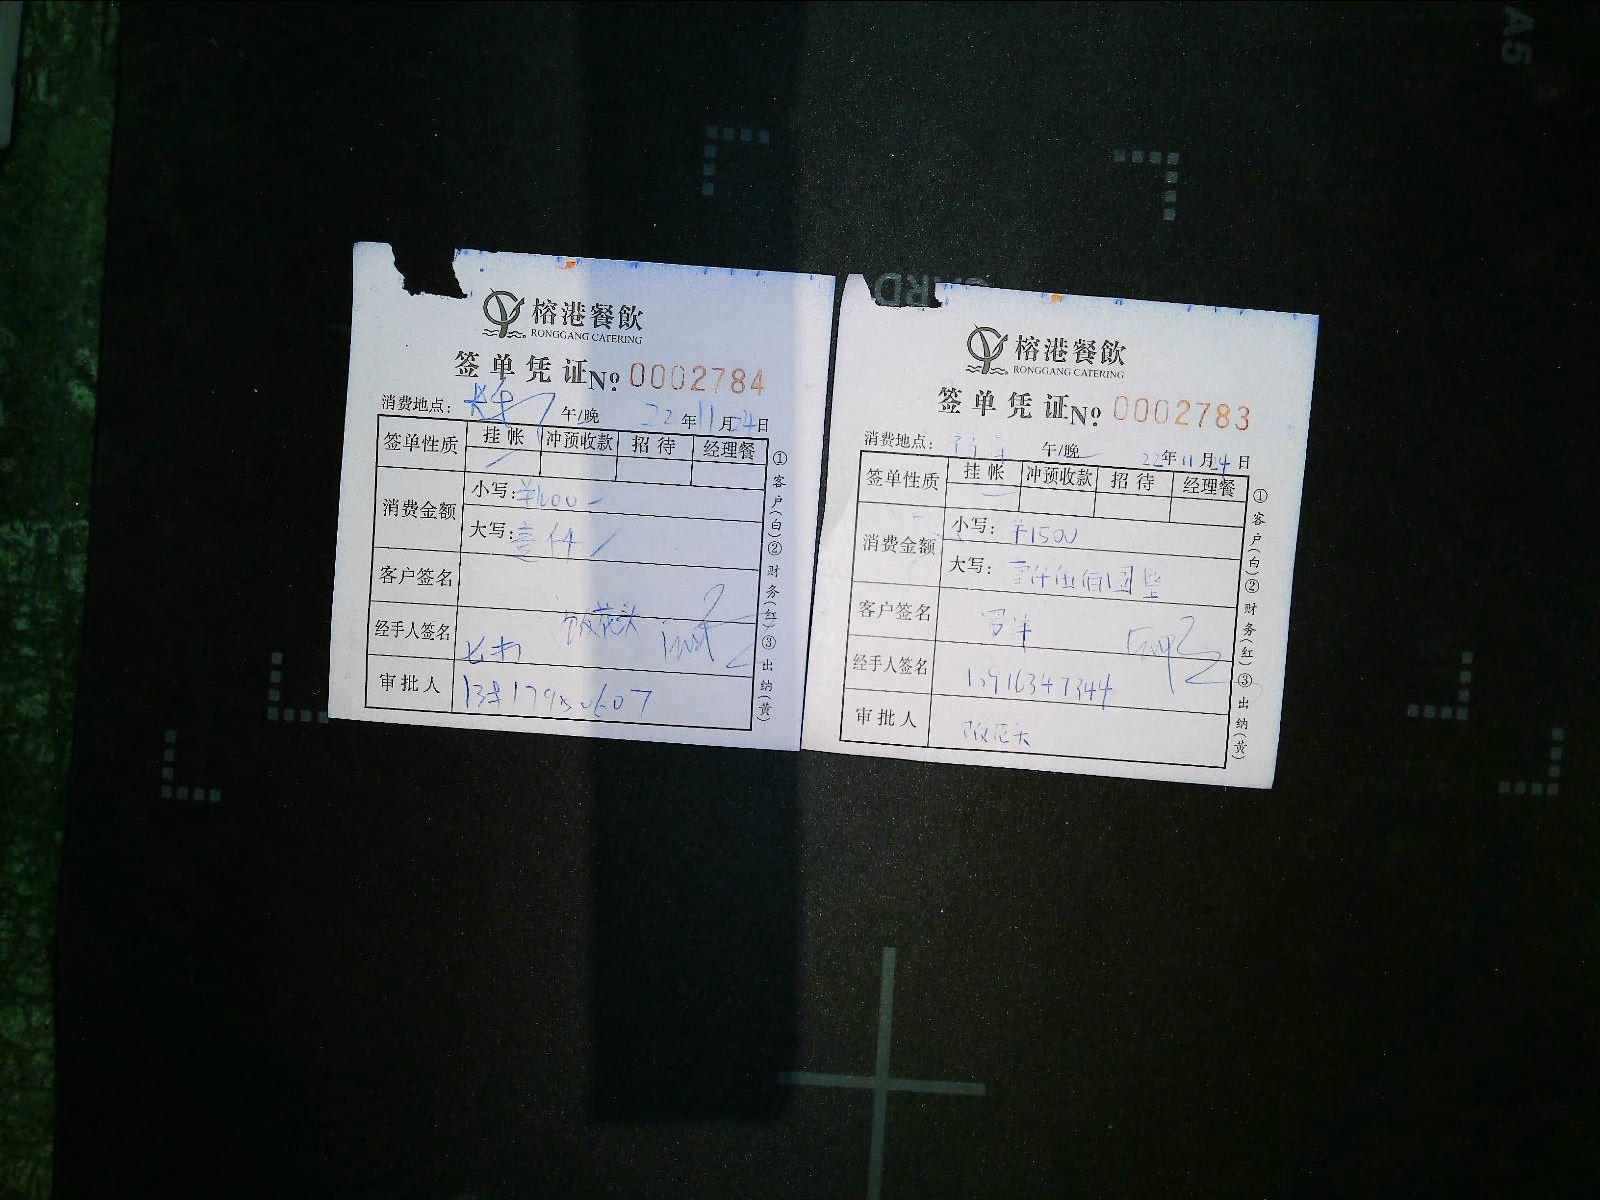 A5
CARD
榕港餐飲
RONGGANG CATERING
签单凭证 Nº 0002784
消费地点： 午/晚 22年11月24日
签单性质 挂帐 冲预收款 招待 经理餐
消费金额 小写：¥1000-
大写：壹仟
客户签名
经手人签名
审批人
①客户(白)②财务(红)③出纳(黄)
榕港餐飲
RONGGANG CATERING
签单凭证 Nº 0002783
消费地点： 午/晚 22年11月24日
签单性质 挂帐 冲预收款 招待 经理餐
消费金额 小写：¥1500
大写：壹仟伍佰圆整
客户签名
经手人签名
审批人
①客户(白)②财务(红)③出纳(黄)